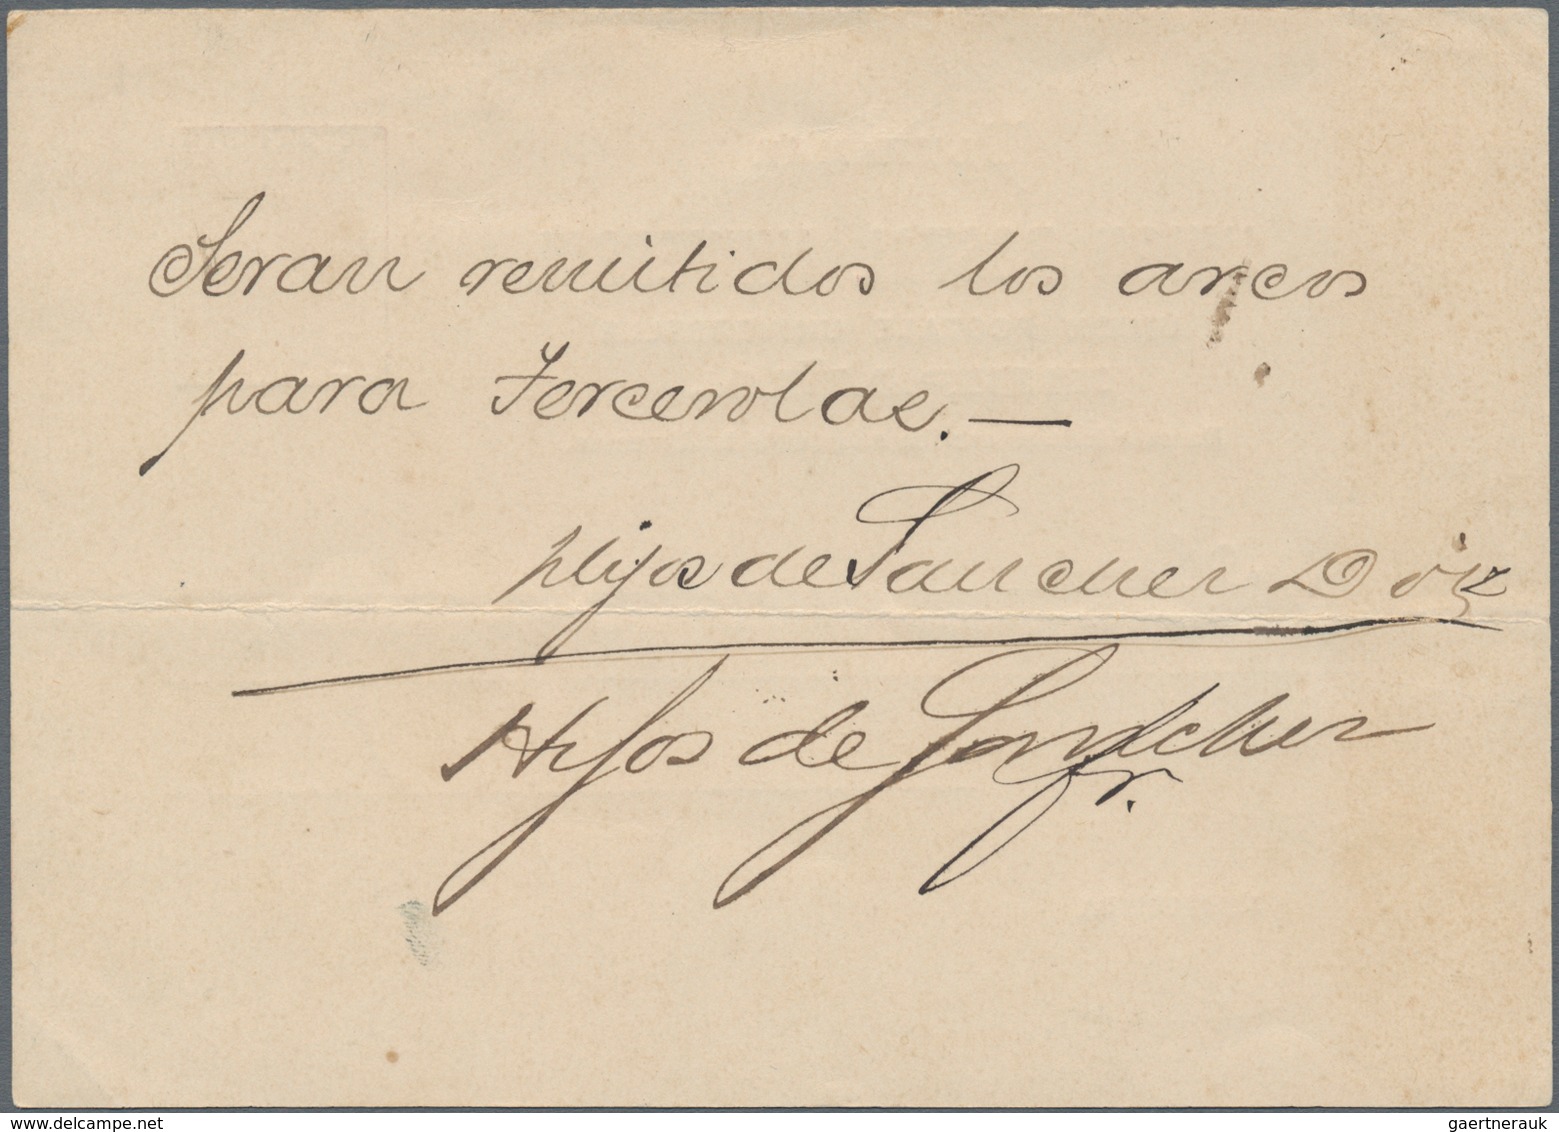 Seran remitidos los arcos
para Tercerolas. —
Hijos de Sanchez Doiz
Hijos de Sanchez
www.delcampe.net
gaertnerauk